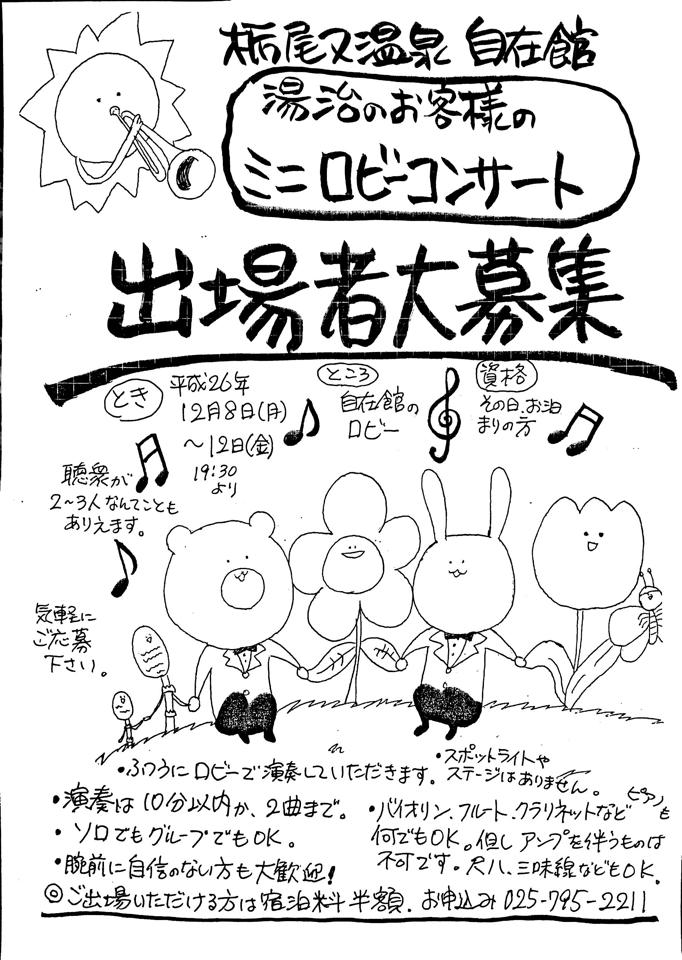 栃尾又温泉 自在館
湯治のお客様の
ミニロビーコンサート
出場者大募集
とき
平成26年
12月8日(月)
～12日(金)
19:30
より
ところ
自在館の
ロビー
資格
その日、お泊
まりの方
聴衆が
2～3人なんてことも
ありえます。
気軽に
ご応募
下さい。
・ふつうにロビーで演奏していただきます。
・スポットライトや
ステージはありません。
・演奏は10分以内か、2曲まで。
・ソロでもグループでもOK。
・腕前に自信のない方も大歓迎!
・バイオリン、フルート、クラリネットなど ピアノも
何でもOK。但しアンプを伴うものは
不可です。尺八、三味線などもOK.
◎ご出場いただける方は宿泊料半額. お申込み 025-795-2211